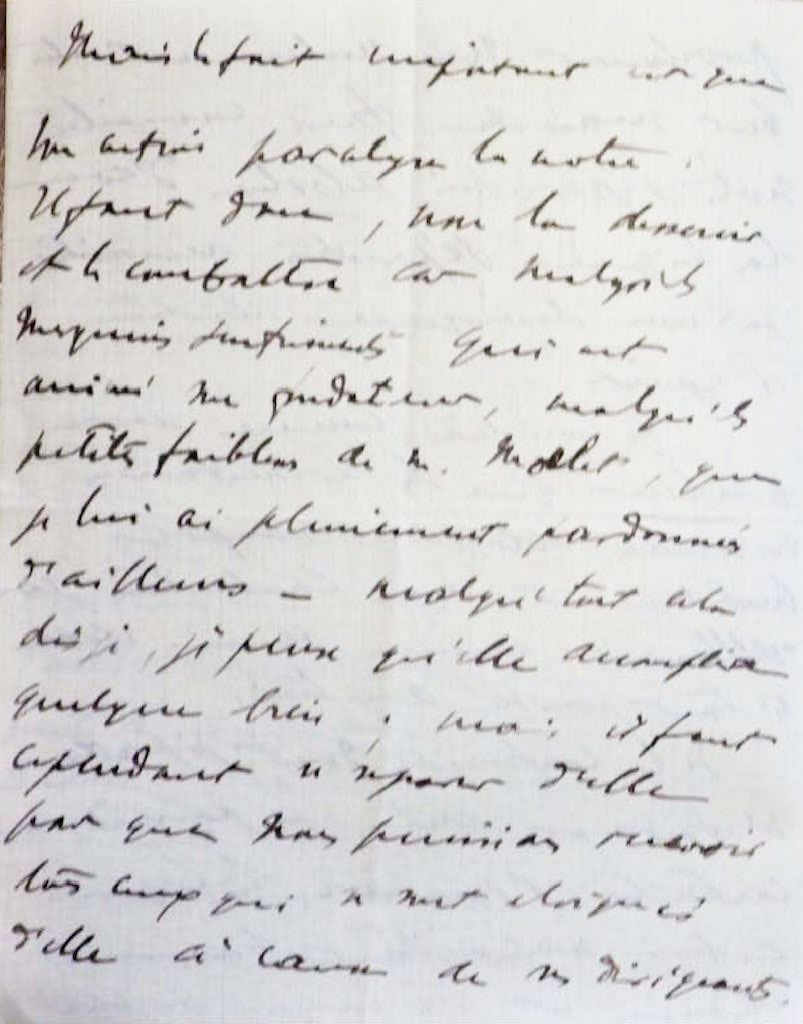 Mais le fait important est que
son action paralyse la notre.
Il faut donc, non la desservir
et la combattre car malgré les
mesquins sentiments qui ont
animé ses fondateurs, malgré les
petites faiblesses de M. , que
je lui ai pleinement pardonnés
d'ailleurs — malgré tout cela
dis-je, je pense qu'elle accomplira
quelque bien ; mais il faut
cependant se séparer d'elle
pour que nous puissions recevoir
tous ceux qui se sont éloignés
d'elle à cause de ses dirigeants.